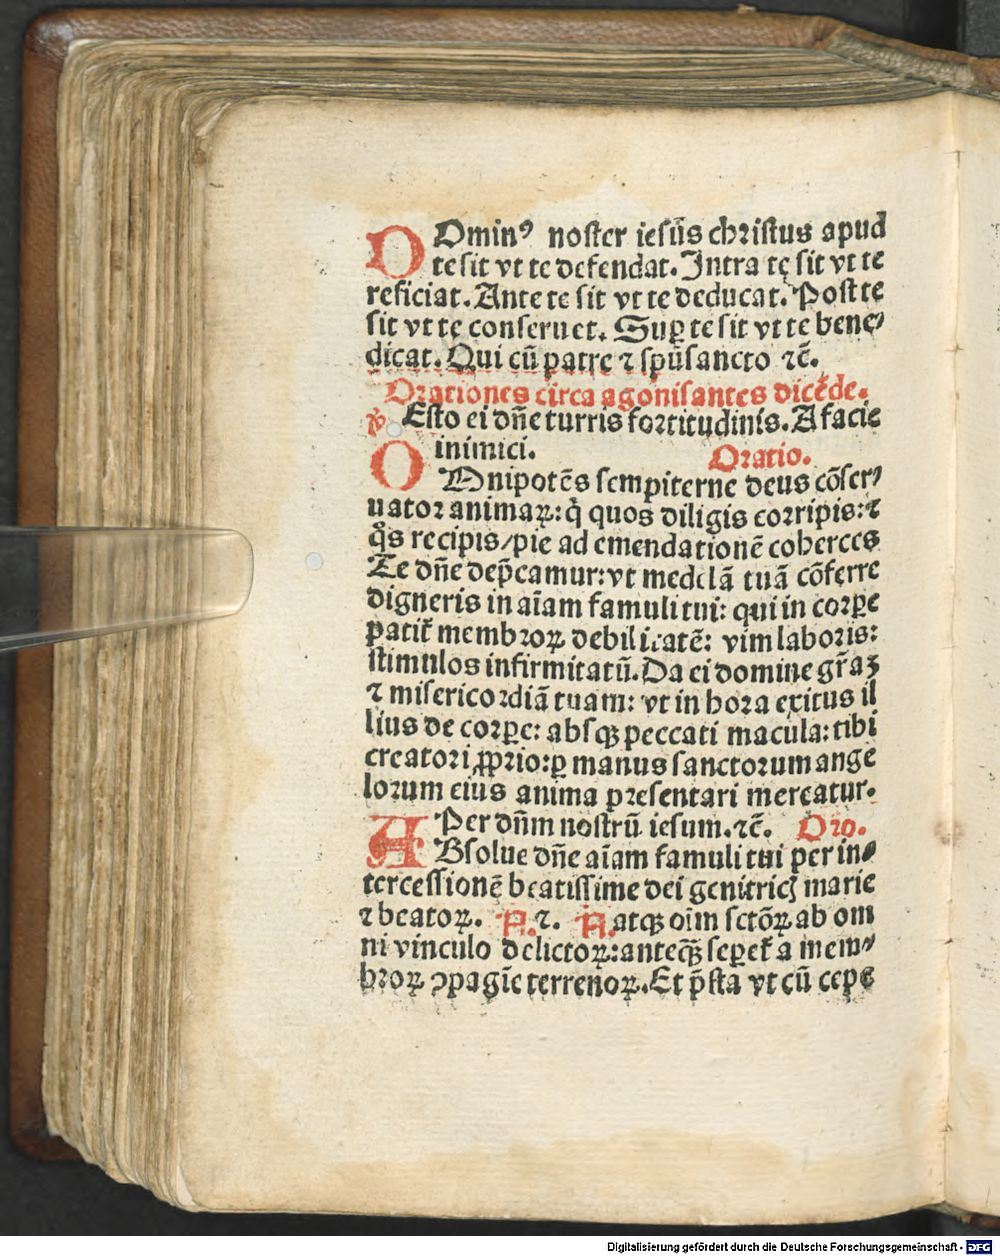 DOminꝰ noster iesūs christus apud
te sit vt te defendat. Intra te sit vt te
reficiat. Ante te sit vt te deducat. Post te
sit vt te conseruet. Suꝑ te sit vt te bene⸗
dicat. Qui cū patre ⁊ spūsancto ⁊c̄.
Orationes circa agonisantes dicēde.
℣ Esto ei dn̄e turris fortitudinis. A facie
inimici. Oratio.
OMnipotēs sempiterne deus cōser⸗
uator animaꝝ: q̇ quos diligis corripis: ⁊
q̊s recipis/pie ad emendationē coherces
Te dn̄e dep̄camur: vt medelā tuā cōferre
digneris in aīam famuli tui: qui in corꝑe
patit᷑ membroꝝ debilitatē: vim laboris:
stimulos infirmitatū. Da ei domine gr̄aꝫ
⁊ misericordiā tuam: vt in hora exitus il
lius de corꝑe: absqꝫ peccati macula: tibi
creatori ꝓprio: ꝑ manus sanctorum ange
lorum eius anima presentari mereatur.
Per dn̄m nostrū iesum. ⁊c̄. Oro.
ABsolue dn̄e aīam famuli tui per in⸗
tercessionē beatissime dei genitricꝭ marie
⁊ beatoꝝ. N. ⁊. N. atqꝫ oīm sctōꝝ ab om
ni vinculo delictoꝝ: anteqꝫ̄ seꝑet᷑ a mem⸗
broꝝ ꝯpagīe terrenoꝝ. Et p̄sta vt cū cepe
Digitalisierung gefördert durch die Deutsche Forschungsgemeinschaft - DFG